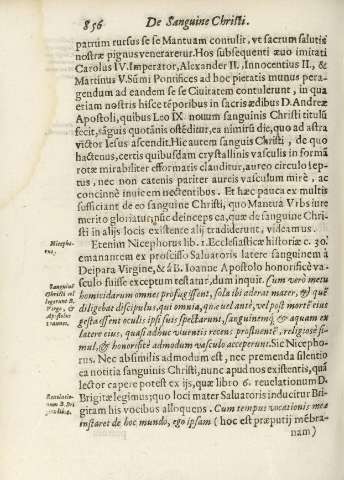 856 De Sanguine Christi.
patrum rursus se se Mantuam contulit, vt sacrum salutis
nostræ pignus veneraretur. Hos subsequenti æuo imitati
Carolus IV. Imperator, Alexander II. Innocentius II., &
Martinus V. Sūmi Pontifices ad hoc pietatis munus pera-
gendum ad eandem se se Ciuitatem contulerunt, in qua
etiam nostris hisce tēporibus in sacris ædibus D. Andreæ
Apostoli, quibus Leo IX nouum sanguinis Christi titulū
fecit, sāguis quotānis ostēditur, ea nimirū die, quo ad astra
victor Iesus ascendit. Hic autem sanguis Christi, de quo
hactenus, certis quibusdam crystallinis vasculis in formā
rotæ mirabiliter efformatis clauditur, aureo circulo sep-
tus, nec non catenis pariter aureis vasculum mirè, ac
concinnè inuicem nectentibus. Et hæc pauca ex multis
sufficiant de eo sanguine Christi, quo Mantuā Vrbs iure
merito gloriatur; nūc deinceps ea, quæ de sanguine Chri-
sti in alijs locis existente alij tradiderunt, videamus.
Nicepho-
rus.
Etenim Nicephorus lib. 1. Ecclesiasticæ historiæ c. 30.
emanantem ex proscisso Saluatoris latere sanguinem à
Deipara Virgine, & à B. Ioanne Apostolo honorificè va-
sculo suisse exceptum testatur, dum inquit.
Sanguinē
Christi col
legerunt B.
Virgo, &
Apostolus
Ioannes.
Cum verò metu
homicidarum omnes profugissent, sola ibi aderat mater, & quē
diligebat discipulus, qui omnia, quæ ante, vel post mortē eius
gesta essent oculis ipsi suis spectarunt, sanguinemq; & aquam ex
latere eius, quasi adhuc viuentis recens profluentē, religiosè si-
mul, & honorificè admodum vasculo acceperunt. Sic Nicepho-
rus. Nec absimilis admodum est, nec premenda silentio
ea notitia sanguinis Christi, nunc apud nos existentis, quā
lector capere potest ex ijs, quæ libro 6. reuelationum D.
Reuelatio-
num B. Bri
gitæ
Brigitæ legimus; quo loci mater Saluatoris inducitur Bri-
gitam his vocibus alloquens. Cum tempus vocationis meæ
instaret de hoc mundo, ego ipsam (hoc est præputij mēbra-
nam)